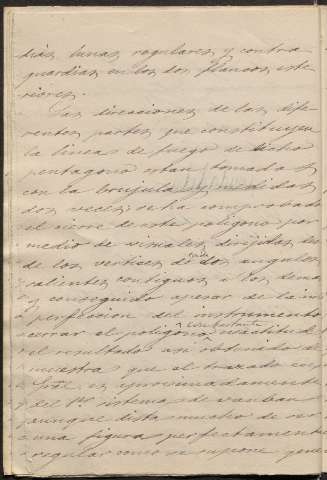 dias, lunas regulares y contra
guardias en los dos flancos este
riores.
Las direcciones de las dife
rentes partes que constituyen
la lineas de fuego de dicho
pentagono estan tomadas
con la brujula y medidas
dos veces; se ha comprobado
el cierre de este poligono por
medio de visuales dirijidas des
de los vertices de cada dos angulos
salientes contiguos a los demas
y conseguido apesar de la im
perfeccion del instrumento
cerrar el poligono con bastante exactitud
el resultado asi obtenido de
muestra que el trazado
es aproximadamente
del 1er sistema de Vauban
aunque dista mucho de ser
una figura perfectamente
regular como se supone